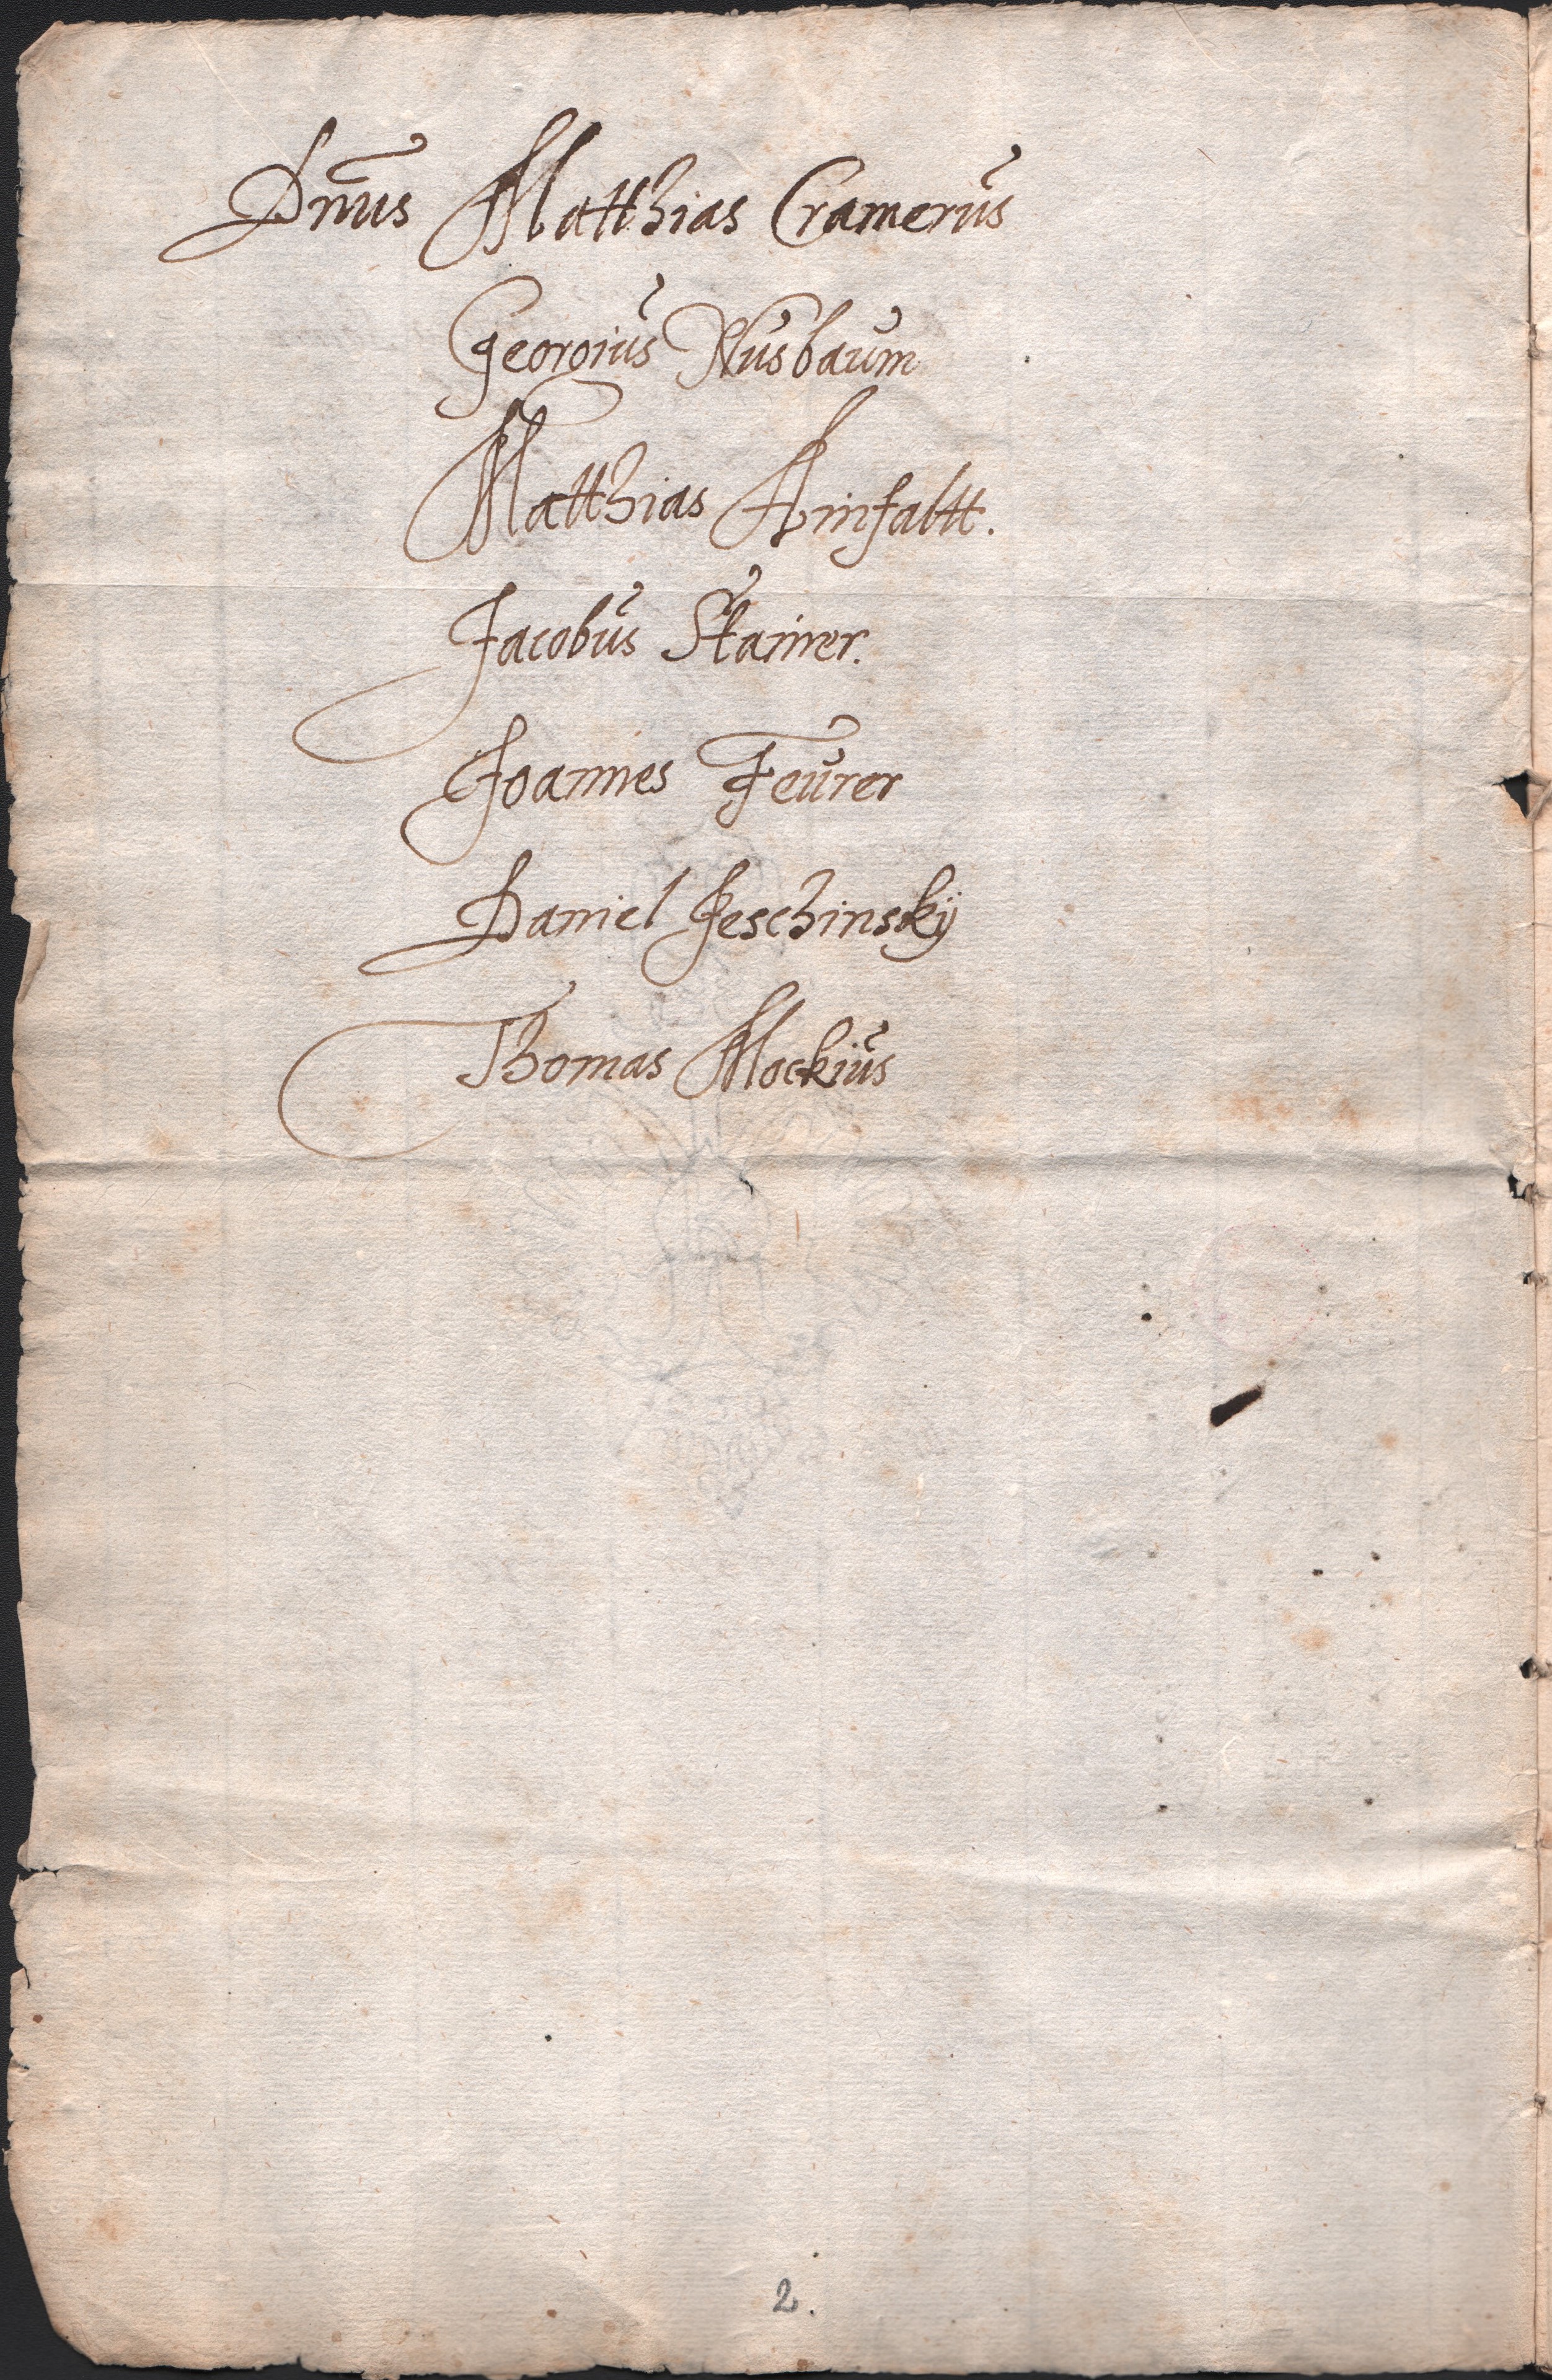 Dnūs Matthias Cramerus
Georgius Nusbaum
Matthias Ainfaltt.
Jacobus Stainer.
Joannes Feurer
Daniel Jeschinskÿ
Thomas Mockius
2.